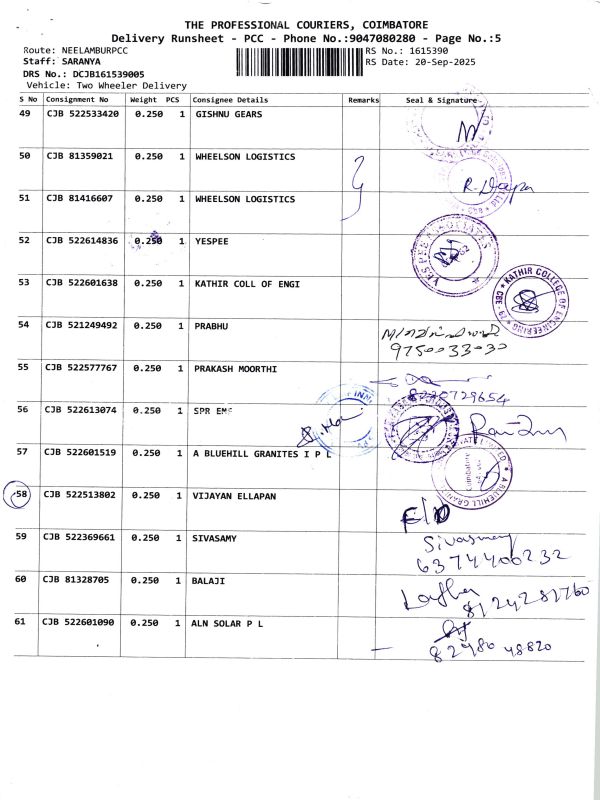 THE PROFESSIONAL COURIERS, COIMBATORE
Delivery Runsheet - PCC - Phone No.:9047080280 - Page No.:5
Route: NEELAMBURPCC RS No.: 1615390
Staff: SARANYA RS Date: 20-Sep-2025
DRS No.: DCJB161539005
Vehicle: Two Wheeler Delivery
S No Consignment No Weight PCS Consignee Details Remarks Seal & Signature
49 CJB 522533420 0.250 1 GISHNU GEARS
50 CJB 81359021 0.250 1 WHEELSON LOGISTICS
51 CJB 81416607 0.250 1 WHEELSON LOGISTICS
52 CJB 522614836 0.250 1 YESPEE
YES PEE ASSOCIATES
53 CJB 522601638 0.250 1 KATHIR COLL OF ENGI
KATHIR COLLEGE OF ENGINEERING CBE - 29
54 CJB 521249492 0.250 1 PRABHU
9750033030
55 CJB 522577767 0.250 1 PRAKASH MOORTHI
8220729654
56 CJB 522613074 0.250 1 SPR EMS
57 CJB 522601519 0.250 1 A BLUEHILL GRANITES I P L
Coimbatore
58 CJB 522513802 0.250 1 VIJAYAN ELLAPAN
59 CJB 522369661 0.250 1 SIVASAMY
Sivasamy
6374400232
60 CJB 81328705 0.250 1 BALAJI
8124281760
61 CJB 522601090 0.250 1 ALN SOLAR P L
82980 48820